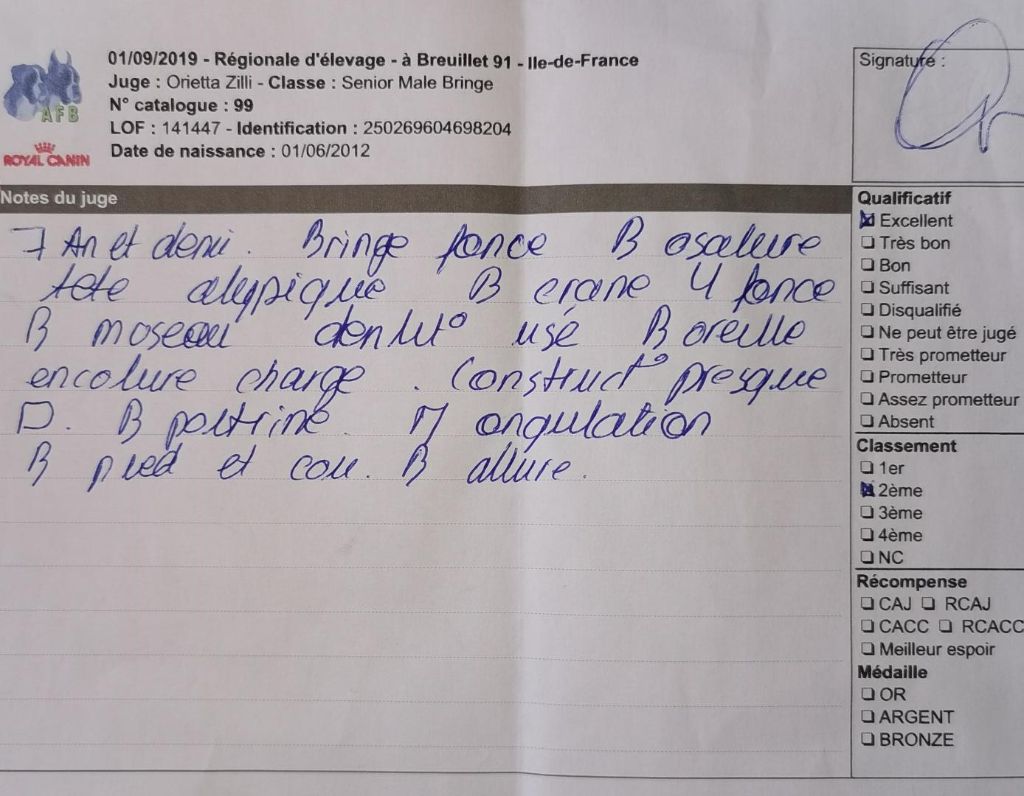 01/09/2019 - Régionale d'élevage - à Breuillet 91 - Ile-de-France
Juge : Orietta Zilli - Classe : Senior Male Bringe
N° catalogue : 99
LOF : 141447 - Identification : 250269604698204
Date de naissance : 01/06/2012
AFB
ROYAL CANIN
Signature :
Notes du juge
7 An et demi. Bringe fonce B osature
tete atypique B crane Y fonce
B moseau dentit° usé B oreille
encolure charge. Construct° presque
□. B poitrine. M angulation
B pied et cou. B allure.
Qualificatif
Excellent
Très bon
Bon
Suffisant
Disqualifié
Ne peut être jugé
Très prometteur
Prometteur
Assez prometteur
Absent
Classement
1er
2ème
3ème
4ème
NC
Récompense
CAJ RCAJ
CACC RCACC
Meilleur espoir
Médaille
OR
ARGENT
BRONZE